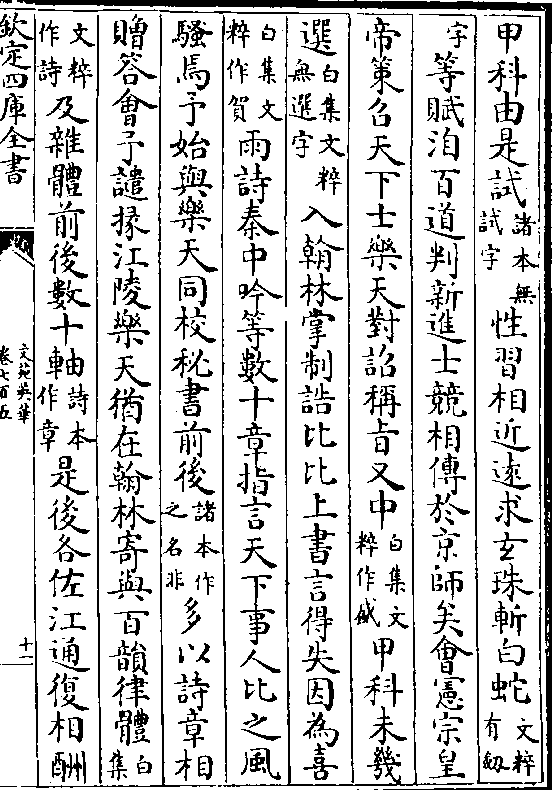 甲科由是試諸本無試字性習相近遠求玄珠斬白蛇文粹有劒
字等賦洎百道判新進士競相傳於京師矣會憲宗皇
帝策召天下士樂天對詔稱旨又中白集文粹作盛甲科未幾
選白集文粹無選字入翰林掌制誥比比上書言得失因為喜
白集文粹作賀雨詩秦中吟等數十章指言天下事人比之風
騷焉予始與樂天同校秘書前後諸本作之名非多以詩章相
贈答會予譴掾江陵樂天猶在翰林寄與百韻律體白集
文粹作詩及雜體前後數十軸詩本作章是後各佐江通復相酬
欽定四庫全書
文苑英華
卷七百五
十一